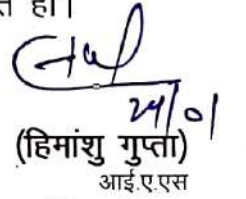 हो।
24/01
(हिमांशु गुप्ता)
आई.ए.एस